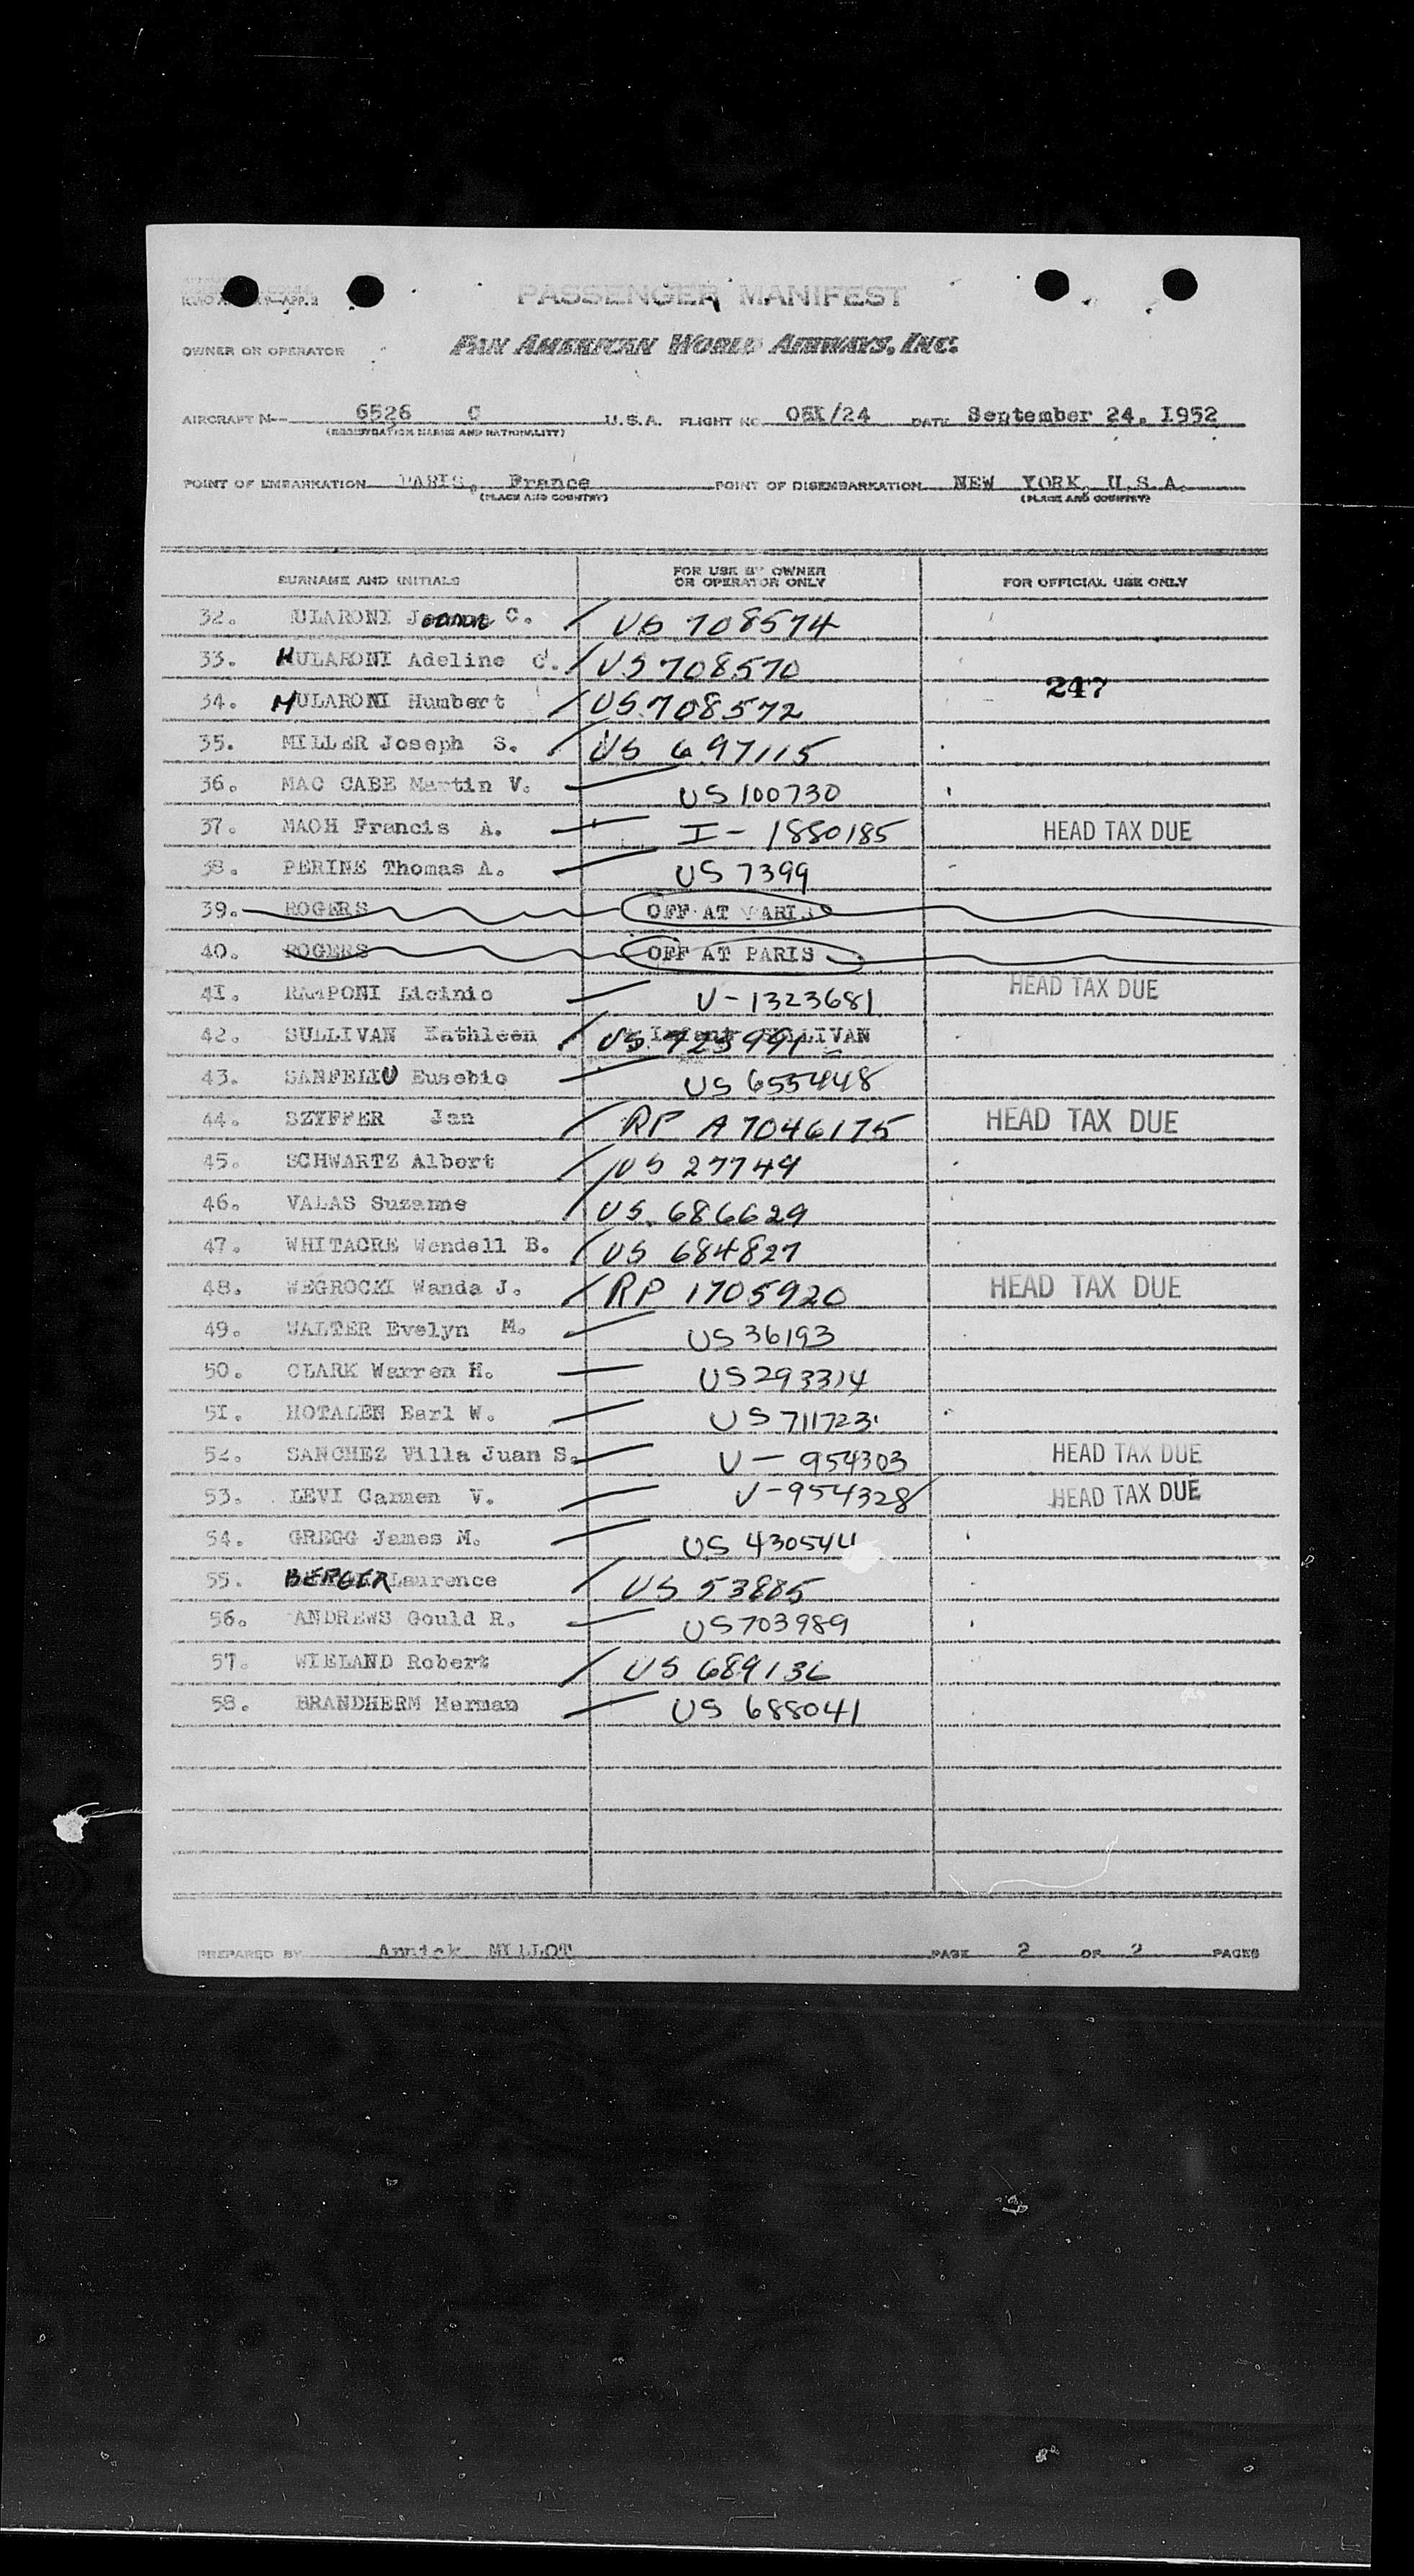 PASSENGER MANIFEST
OWNER OR OPERATOR PAN AMERICAN WORLD AIRWAYS, INC.
AIRCRAFT N— 6526 C U.S.A. FLIGHT NO. /24 DATE September 24, 1952
(REGISTRATION MARKS AND NATIONALITY)
POINT OF EMBARKATION PARIS, France POINT OF DISEMBARKATION NEW YORK, U.S.A.
(PLACE AND COUNTRY) (PLACE AND COUNTRY)
SURNAME AND INITIALS FOR USE BY OWNER OR OPERATOR ONLY FOR OFFICIAL USE ONLY
32. MULARONI C. US 708574
33. MULARONI Adeline C. US 708570
34. MULARONI Humbert US 708572 247
35. MILLER Joseph S. US 697115
36. MAC CABE Martin V. US 100730
37. MACH Francis A. I- 1880185 HEAD TAX DUE
38. PERINE Thomas A. US 7399
39. ROGERS OFF AT PARIS
40. ROGERS OFF AT PARIS
41. RAMPONI Licinio V-1323681 HEAD TAX DUE
42. SULLIVAN Kathleen Infant SULLIVAN US
43. SANFELIU Eusebio US 655448
44. SZYFFER Jan RP A7046175 HEAD TAX DUE
45. SCHWARTZ Albert US 27749
46. VALAS Suzanne US 686629
47. WHITACRE Wendell B. US 684827
48. WEGROCKI Wanda J. RP 1705920 HEAD TAX DUE
49. WALTER Evelyn M. US 36193
50. CLARK Warren H. US 293314
51. HOTALEN Earl W. US 711723
52. SANCHEZ Villa Juan S. V- 954303 HEAD TAX DUE
53. LEVI Carmen V. V-954328 HEAD TAX DUE
54. GREGG James M. US 430544
55. BERGER Laurence US 53885
56. ANDREWS Gould R. US 703989
57. WIELAND Robert US 689136
58. BRANDHERM Herman US 688041
PREPARED BY Annick MILLOT PAGE 2 OF 2 PAGES